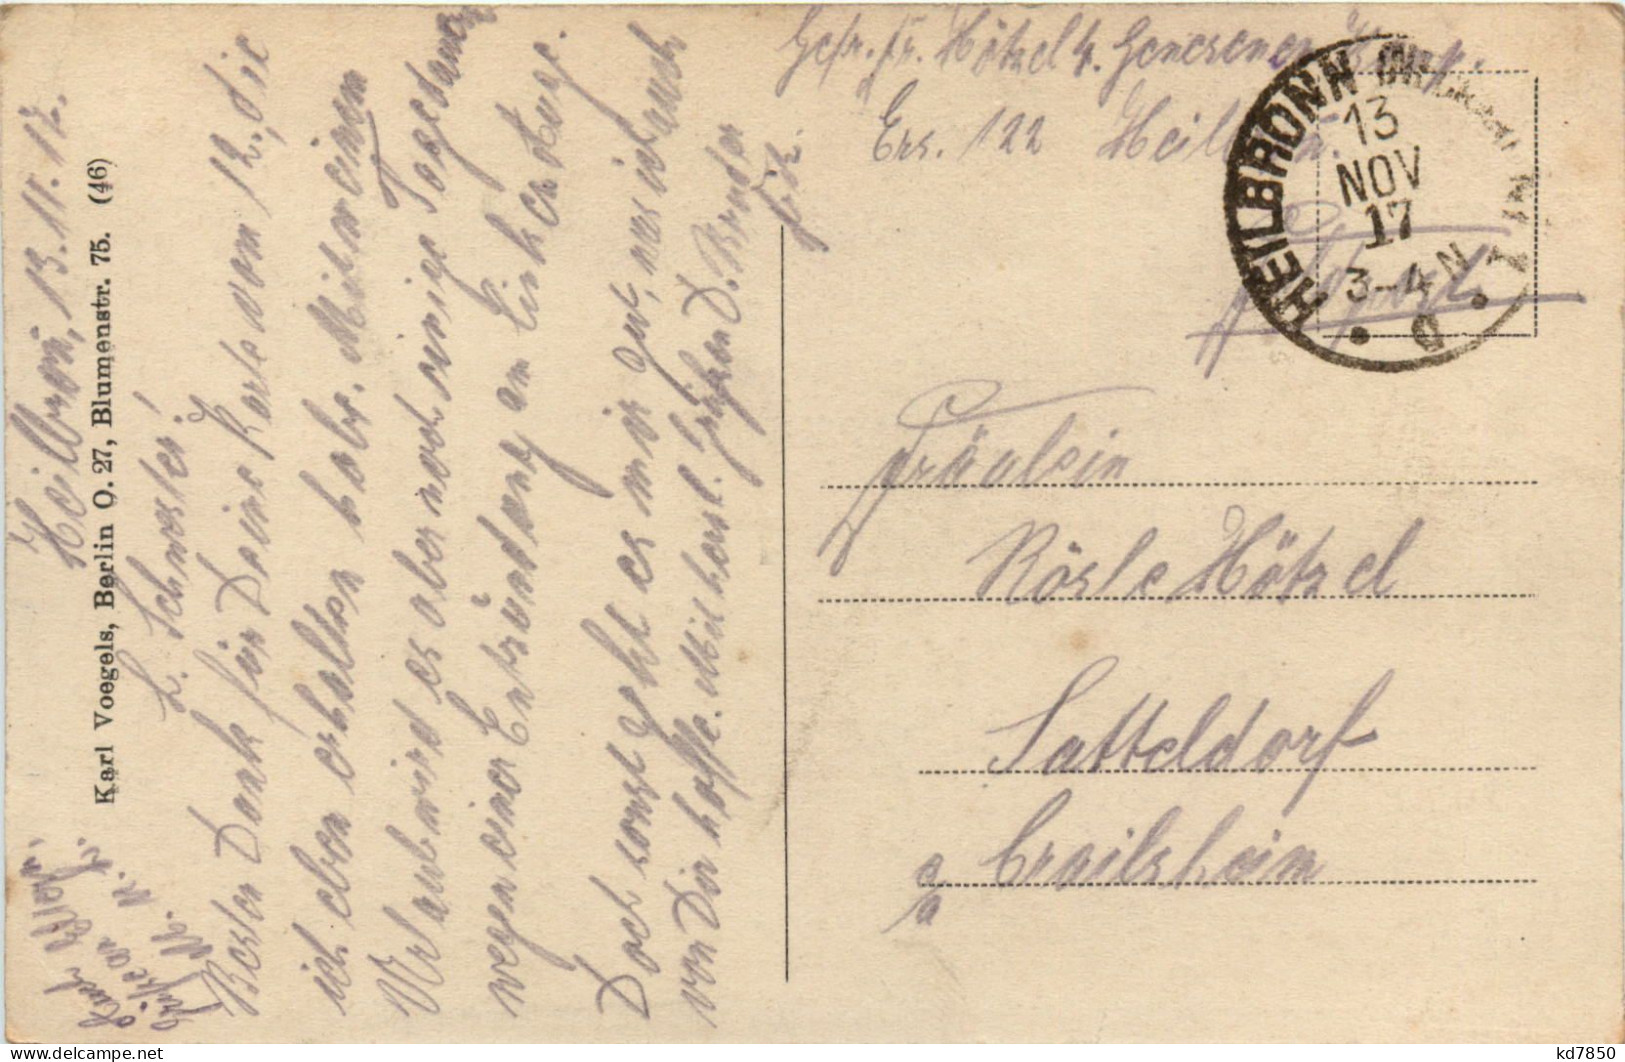 Gefr. Fr. Hötzel 4. Genesenen Komp.
Ers. 122 Heilbronn.
HEILBRONN
13
NOV
17
3-4 N
Feldpost
Fräulein
Rösle Hötzel
Satteldorf
b/a Crailsheim
Karl Voegels, Berlin O. 27, Blumenstr. 75. (46)
Heilbronn, 13. 11. 17.
L. Schwester!
Besten Dank für Deine Karte vom 12. die
ich eben erhalten habe. Mit meinem
Urlaub wird es aber noch einige Tage dauern
wegen einer Entzündung am link. Auge.
Doch sonst geht es mir gut, was ich auch
von Dir hoffe. Mit herzl. Grüßen D. Bruder
Fritz.
kd7850